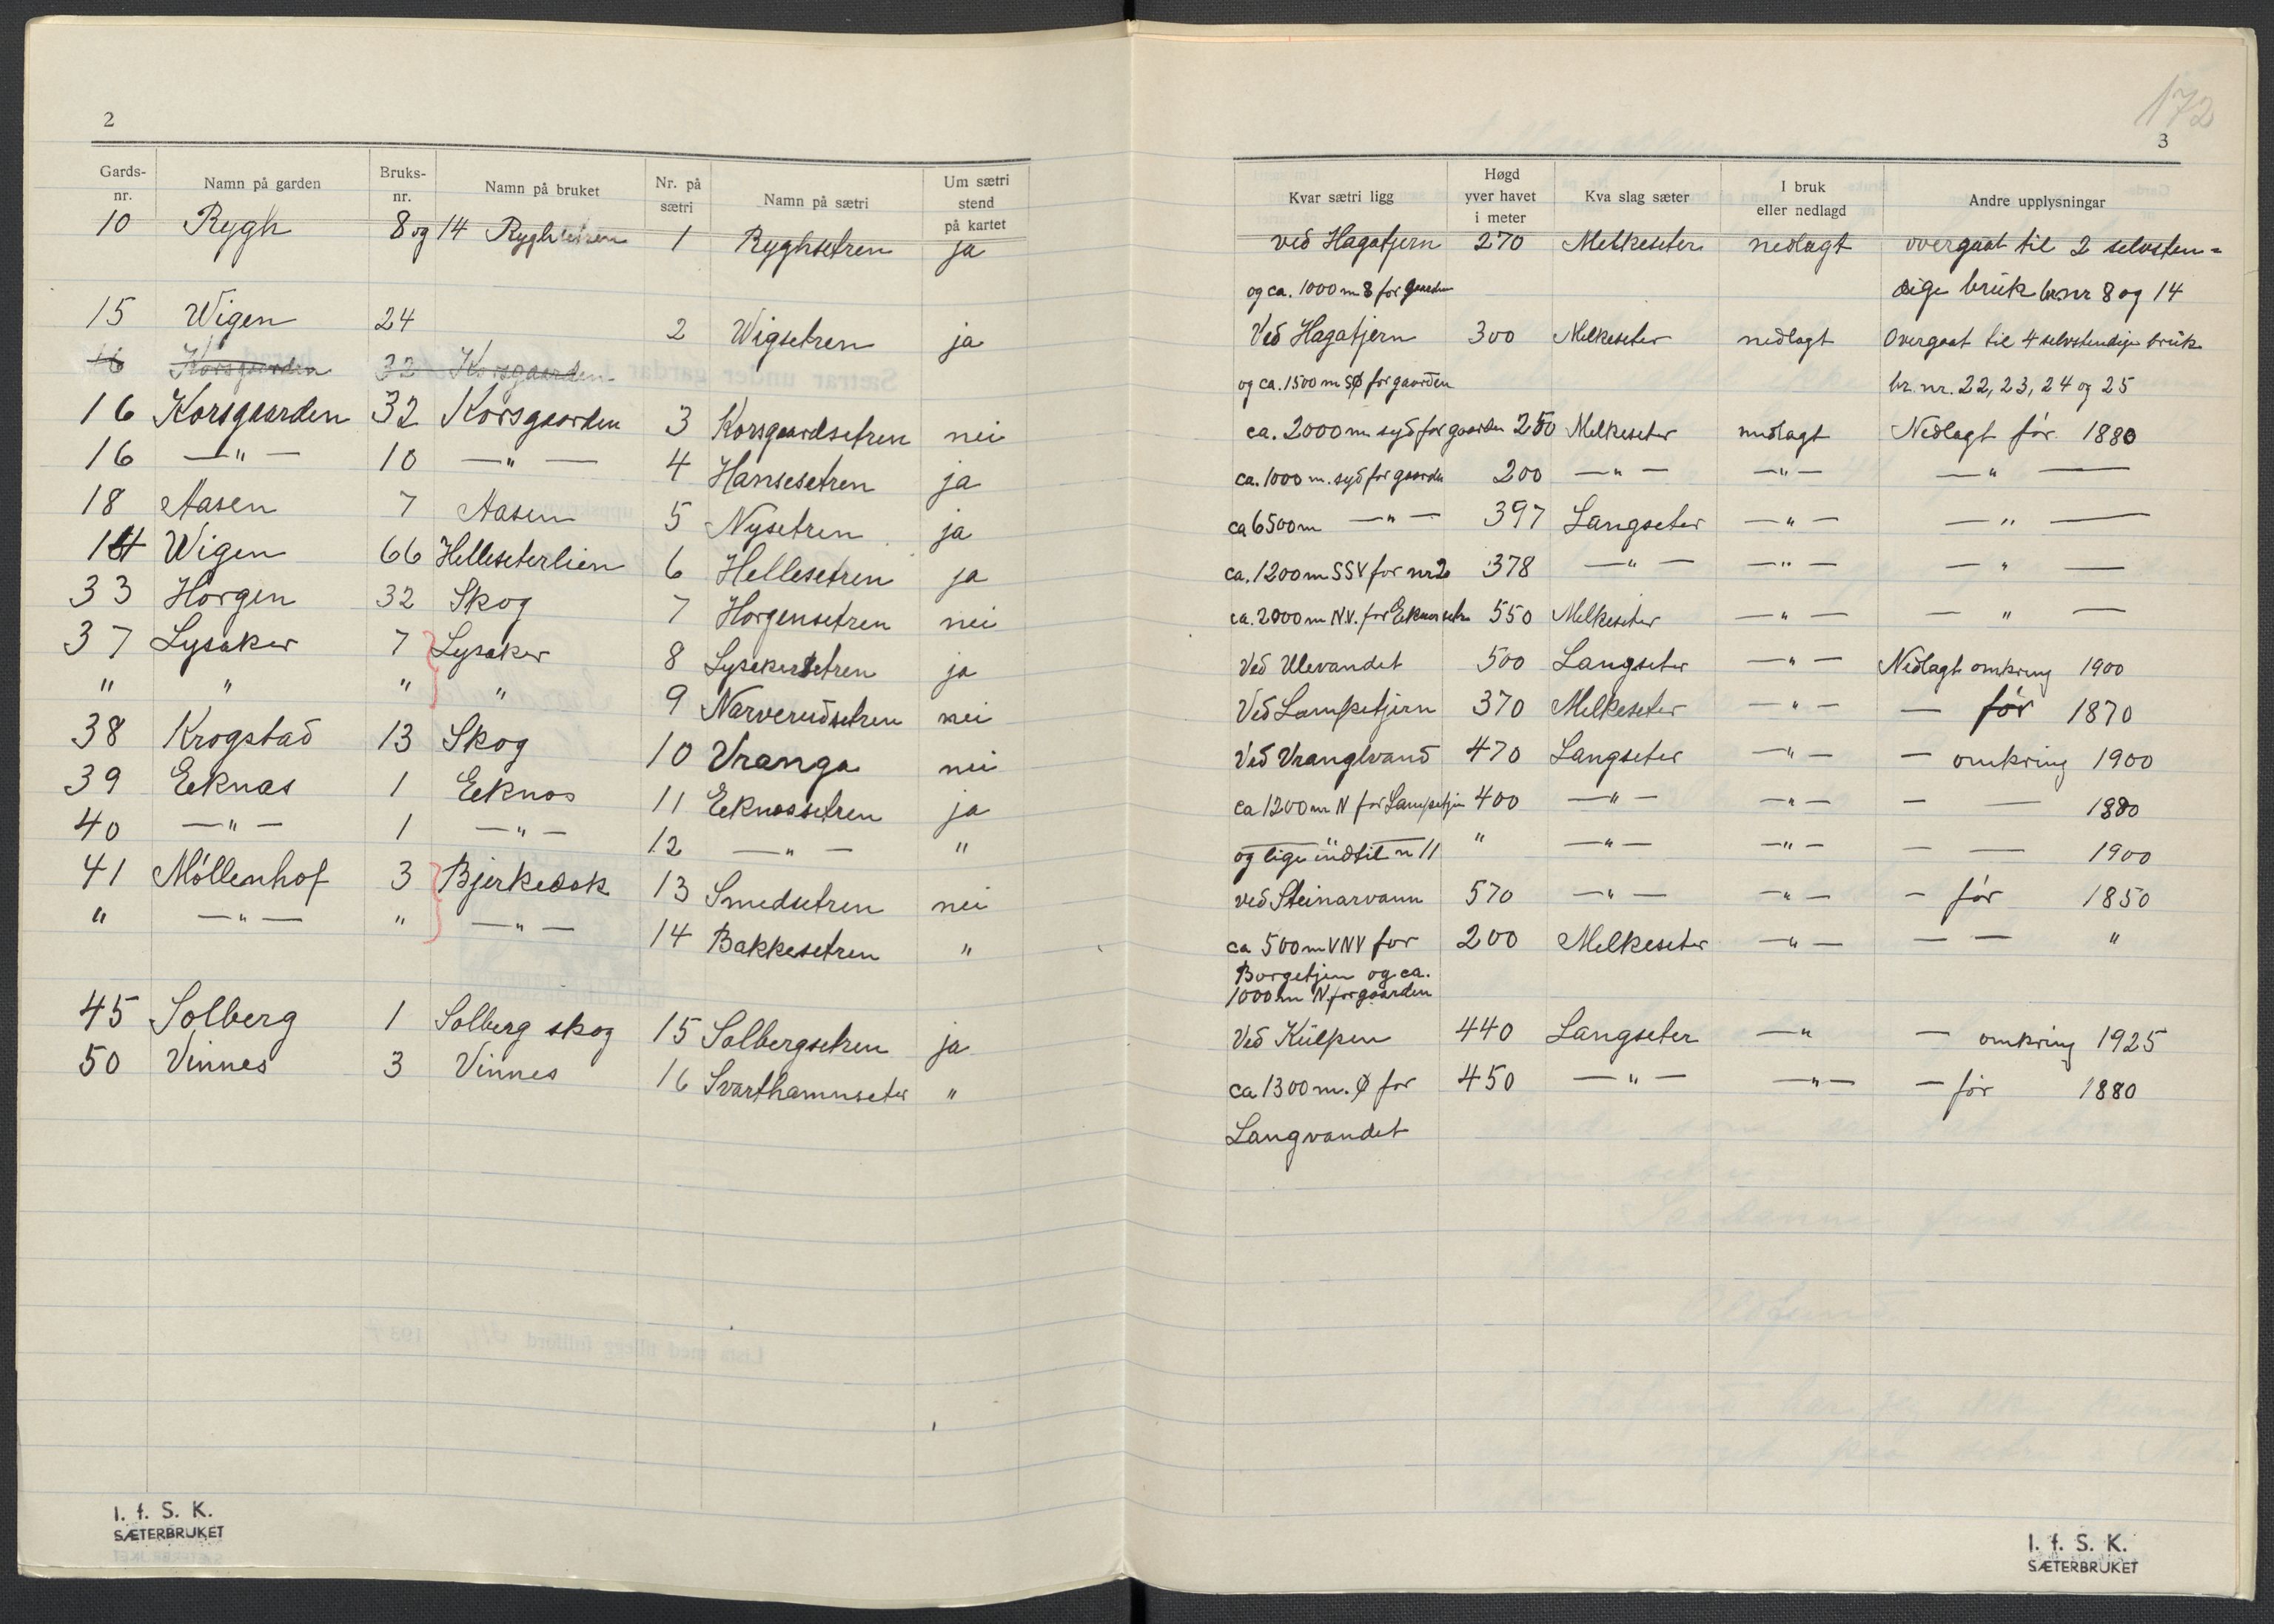 2
Gards-nr. Namn på garden Bruks-nr. Namn på bruket Nr. på sætri Namn på sætri Um sætri stend på kartet
10 Rygh 8 og 14 Ryghsetren 1 Ryghsetren ja
15 Wigen 24 2 Wigsetren ja
16 Korsgaarden 32 Korsgaarden
16 Korsgaarden 32 Korsgaarden 3 Korsgaardsetren nei
16 —"— 10 —"— 4 Hansesetren ja
18 Aasen 7 Aasen 5 Nysetren ja
14 Wigen 66 Helleseterlien 6 Hellesetren ja
33 Horgen 32 Skog 7 Horgensetren nei
37 Lysaker 7 Lysaker 8 Lysakersetren ja
" " " " 9 Narverudsetren nei
38 Krogstad 13 Skog 10 Vranga nei
39 Eeknas 1 Eeknas 11 Eeknassetren ja
40 —"— 1 —"— 12 —"— "
41 Möllenhof 3 Bjerkedok 13 Smedsetren nei
" —"— " —"— 14 Bakkesetren "
45 Solberg 1 Solberg skog 15 Solbergsetren ja
50 Vinnes 3 Vinnes 16 Svarthamnseter "
I. f. S. K.
SÆTERBRUKET
172
3
Kvar sætri ligg Høgd yver havet i meter Kva slag sæter I bruk eller nedlagd Andre upplysningar
ved Hagatjern 270 Melkeseter nedlagt overgaat til 2 selvsten=
og ca. 1000 m S for gaarden dige brük br.nr 8 og 14
Ved Hagatjern 300 Melkeseter nedlagt Overgaat til 4 selvstendige brük
og ca. 1500 m SØ for gaarden br. nr. 22, 23, 24 og 25
ca. 2000 m syd for gaarden 250 Melkeseter nedlagt Nedlagt før 1880
ca. 1000 m. syd for gaarden 200 —"— —"— —"—
ca 6500 m —"— 397 Langseter —"— —"—
ca. 1200 m SSV for nr 2 378 —"— —"— —"—
ca. 2000 m N.V. for Eeknassetr 550 Melkeseter —"— —"—
Ved Ulevandet 500 Langseter —"— Nedlagt omkring 1900
Ved Lampetjern 370 Melkeseter —"— — før 1870
Ved Vranglvand 470 Langseter —"— — omkring 1900
ca 1200 m N for Lampetjern 400 —"— —"— — — 1880
og lige indtil n 11 " —"— —"— — — 1900
ved Steinarvann 570 —"— —"— — før 1850
ca 500 m VNV for 200 Melkeseter —"— — — "
Borgetjern og ca.
1000 m N. for gaarden
Ved Külpen 440 Langseter —" — omkring 1925
ca 1300 m. Ø for 450 —"— —"— — før 1880
Langvandet
I. f. S. K.
SÆTERBRUKET